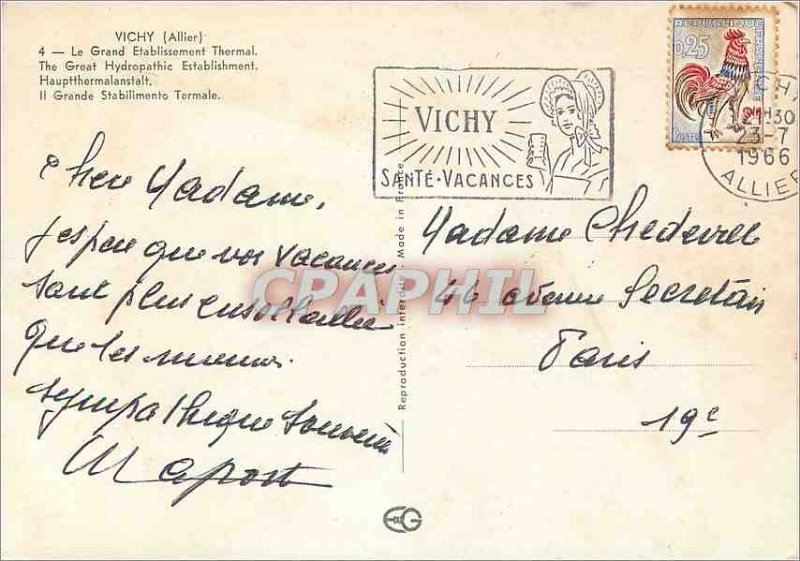 VICHY (Allier)
4 — Le Grand Etablissement Thermal.
The Great Hydropathic Establishment.
Hauptthermalanstalt.
Il Grande Stabilimento Termale.
VICHY
SANTÉ·VACANCES
0,25
POSTES
12H30
23-7
1966
ALLIER
Chère Madame,
j'espère que vos vacances
sont plus ensoleillées
que les miennes.
sympathique souvenir
Reproduction interdite - Made in France
Madame Chedeville
46 avenue Secretan
Paris
19e
CPAPHIL